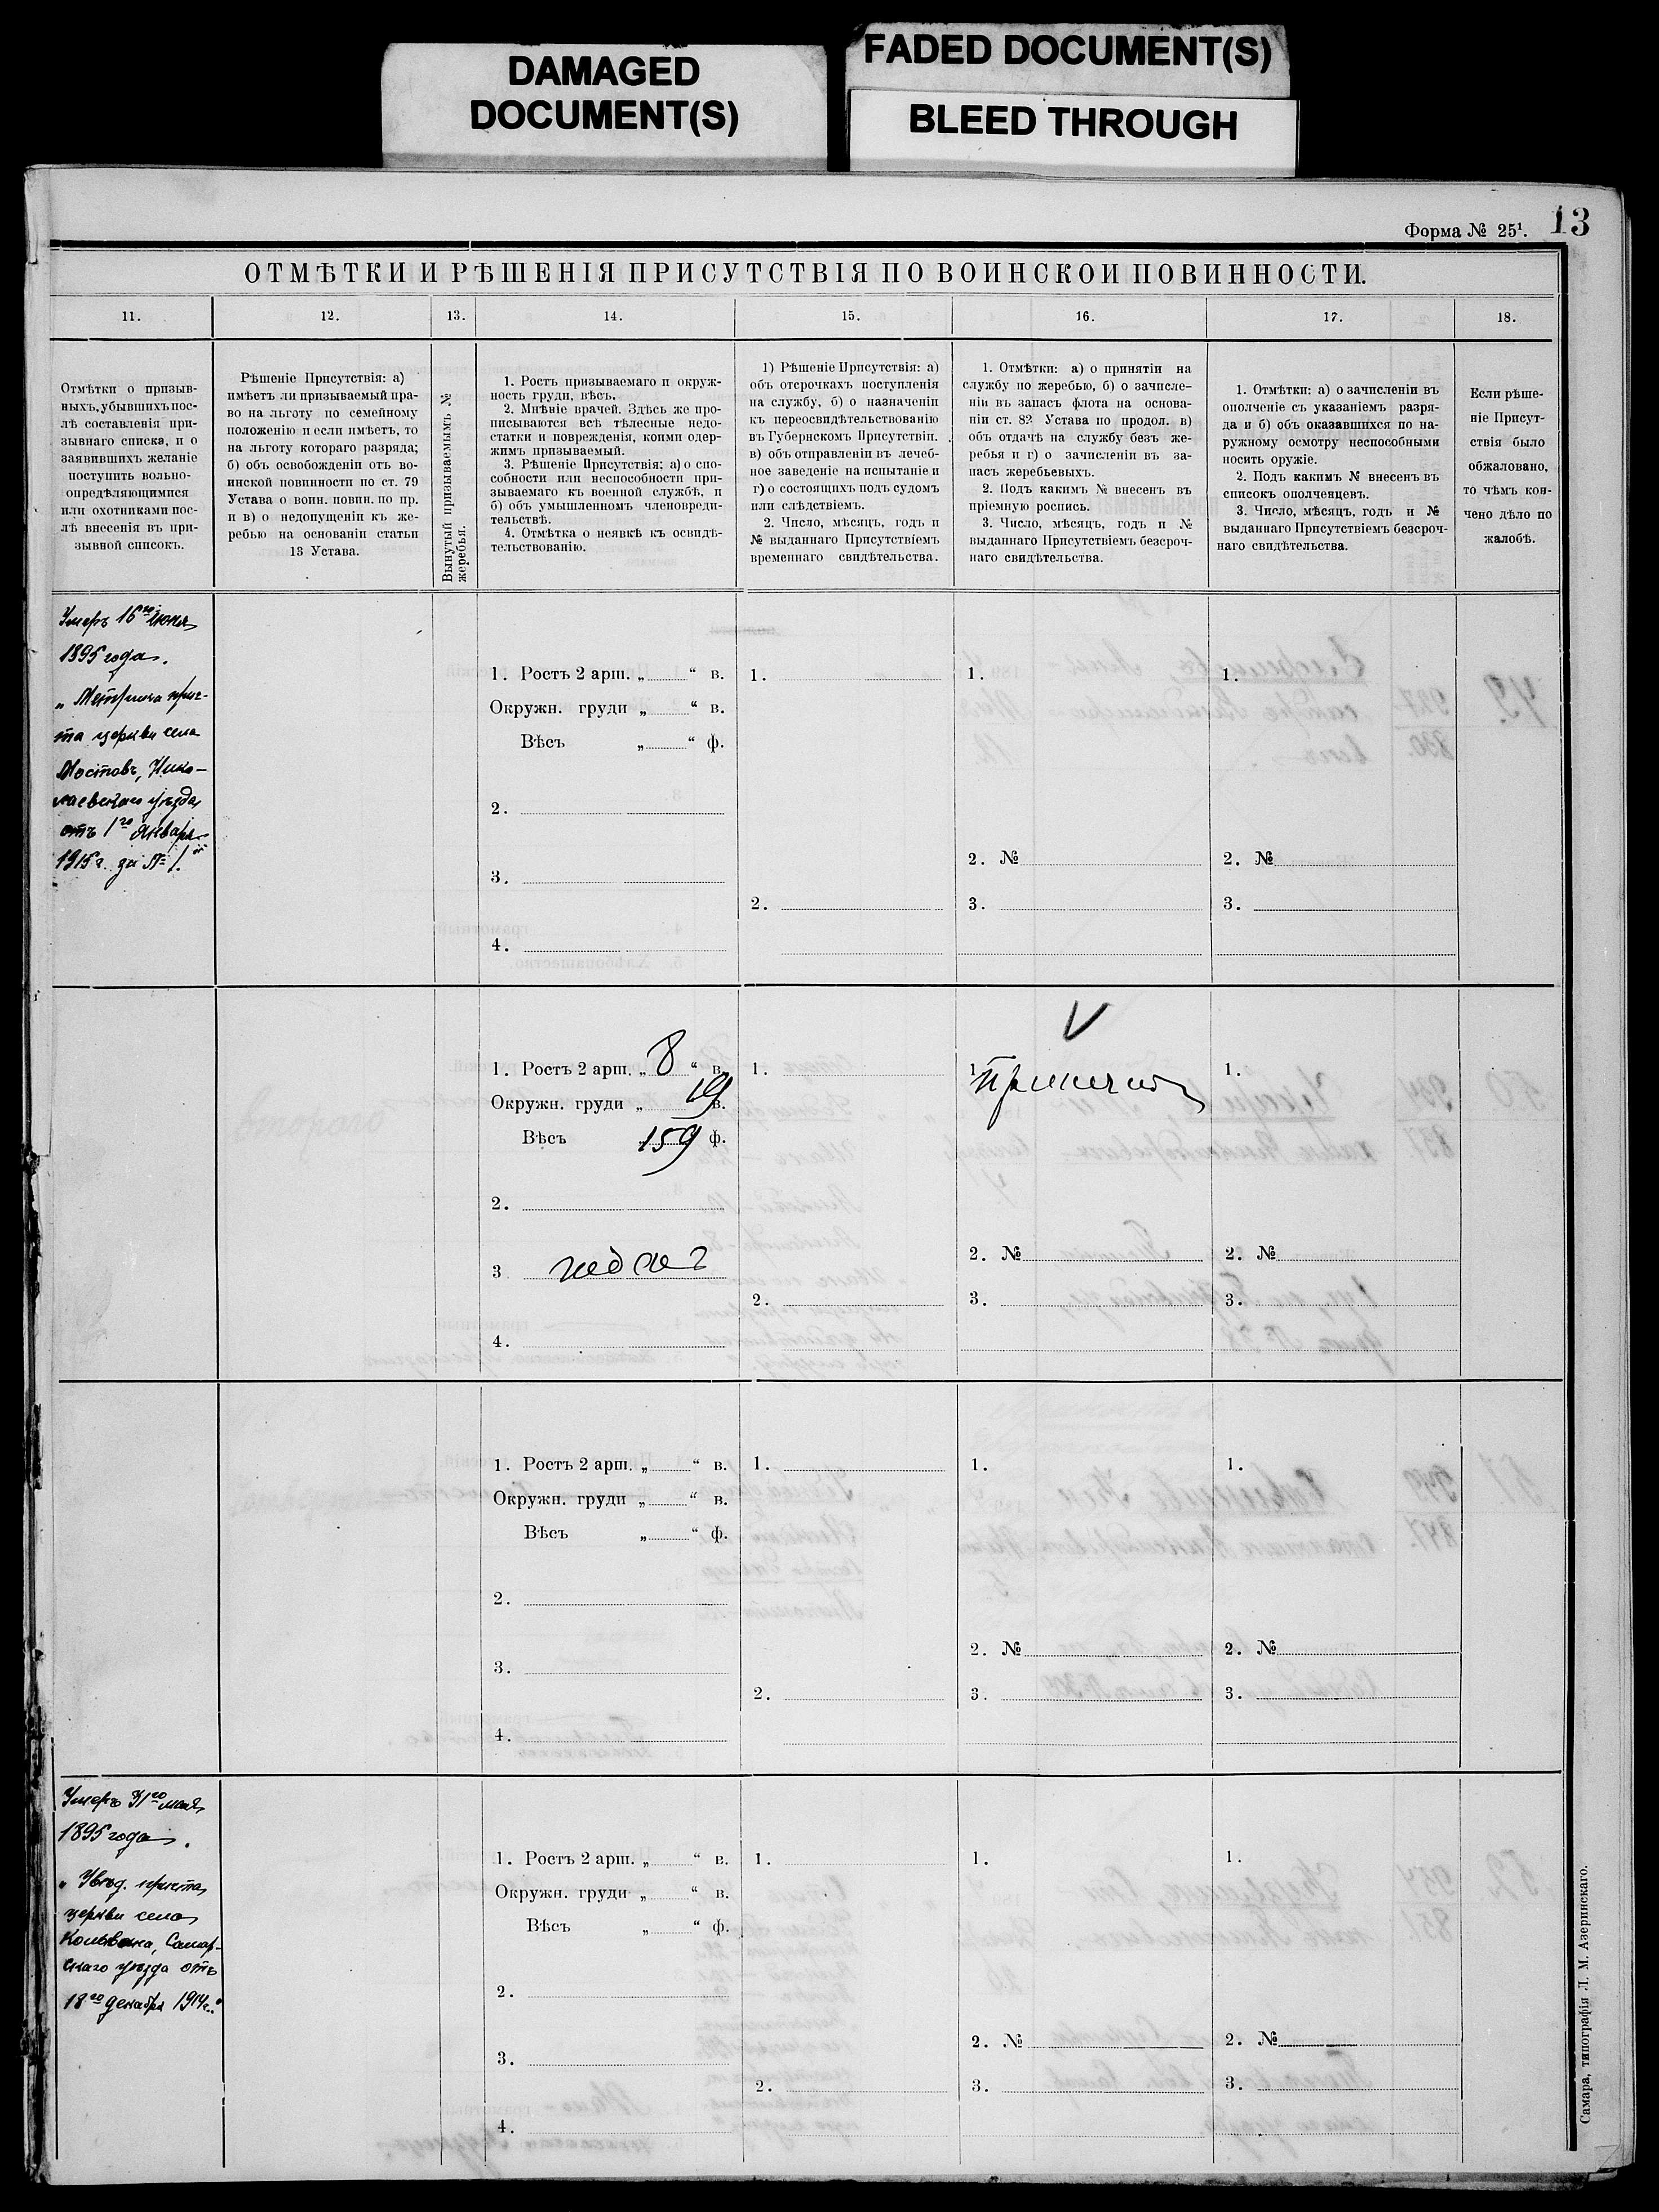 DAMAGED
DOCUMENT(S)
FADED DOCUMENT(S)
BLEED THROUGH
Форма № 25¹. 13
ОТМѢТКИ И РѢШЕНІЯ ПРИСУТСТВІЯ ПО ВОИНСКОЙ ПОВИННОСТИ.
11. 12. 13. 14. 15. 16. 17. 18.
Отмѣтки о призыв-
ныхъ, убывшихъ пос-
лѣ составленія при-
зывнаго списка, и о
заявившихъ желаніе
поступить вольно-
опредѣляющимися
или охотниками пос-
лѣ внесенія въ при-
зывной списокъ.
Рѣшеніе Присутствія: а)
имѣетъ ли призываемый пра-
во на льготу по семейному
положенію и если имѣетъ, то
на льготу котораго разряда;
б) объ освобожденіи отъ во-
инской повинности по ст. 79
Устава о воин. повин. по пр.
и в) о недопущеніи къ же-
ребью на основаніи статьи
13 Устава.
Вынутый призываемымъ №
жеребья.
1. Ростъ призываемаго и окруж-
ность груди, вѣсъ.
2. Мнѣніе врачей. Здѣсь же про-
писываются всѣ тѣлесные недо-
статки и поврежденія, коими одер-
жимъ призываемый.
3. Рѣшеніе Присутствія: а) о спо-
собности или неспособности при-
зываемаго къ военной службѣ, и
б) объ умышленномъ членовреди-
тельствѣ.
4. Отмѣтка о неявкѣ къ освидѣ-
тельствованію.
1) Рѣшеніе Присутствія: а)
объ отсрочкахъ поступленія
на службу, б) о назначеніи
къ переосвидѣтельствованію
въ Губернскомъ Присутствіи.
в) объ отправленіи въ лечеб-
ное заведеніе на испытаніе и
г) о состоящихъ подъ судомъ
или слѣдствіемъ.
2. Число, мѣсяцъ, годъ и
№ выданнаго Присутствіемъ
временнаго свидѣтельства.
1. Отмѣтки: а) о принятіи на
службу по жеребью, б) о зачисле-
ніи въ запасъ флота на основа-
ніи ст. 82 Устава по продол. в)
объ отдачѣ на службу безъ же-
ребья и г) о зачисленіи въ за-
пасъ жеребьевыхъ.
2. Подъ какимъ № внесенъ въ
пріемную роспись.
3. Число, мѣсяцъ, годъ и №
выданнаго Присутствіемъ безсроч-
наго свидѣтельства.
1. Отмѣтки: а) о зачисленіи въ
ополченіе съ указаніемъ разря-
да и б) объ оказавшихся по на-
ружному осмотру неспособными
носить оружіе.
2. Подъ какимъ № внесенъ въ
списокъ ополченцевъ.
3. Число, мѣсяцъ, годъ и №
выданнаго Присутствіемъ безсроч-
наго свидѣтельства.
Если рѣше-
ніе Присут-
ствія было
обжаловано,
то чѣмъ кон-
чено дѣло по
жалобѣ.
Умеръ 16го Июня
1895 года.
„Метрика прич-
та церкви села
Мостовъ, Нико-
лаевскаго уѣзда
отъ 1го Января
1915 г. за № 1.“
1. Ростъ 2 арш. „ “ в.
Окружн. груди „ “ в.
Вѣсъ „ “ ф.
2.
3.
4.
1.
2.
1.
2. №
3.
1.
2. №
3.
второго
1. Ростъ 2 арш. „ 8 “ в.
Окружн. груди „ 19 в.
Вѣсъ 159 ф.
2.
3 годенъ
4.
1.
2.
V
1. принятъ
2. №
3.
1.
2. №
3.
1. Ростъ 2 арш. „ “ в.
Окружн. груди „ “ в.
Вѣсъ „ “ ф.
2.
3.
4.
1.
2.
1.
2. №
3.
1.
2. №
3.
Умеръ 31го мая
1895 года.
„Увѣд. причта
церкви села
Колывана, Самар-
скаго уѣзда отъ
18го декабря 1914 г.“
1. Ростъ 2 арш. „ “ в.
Окружн. груди „ “ в.
Вѣсъ „ “ ф.
2.
3.
4.
1.
2.
1.
2. №
3.
1.
2. №
3.
Самара, типографія Л. М. Азеринскаго.